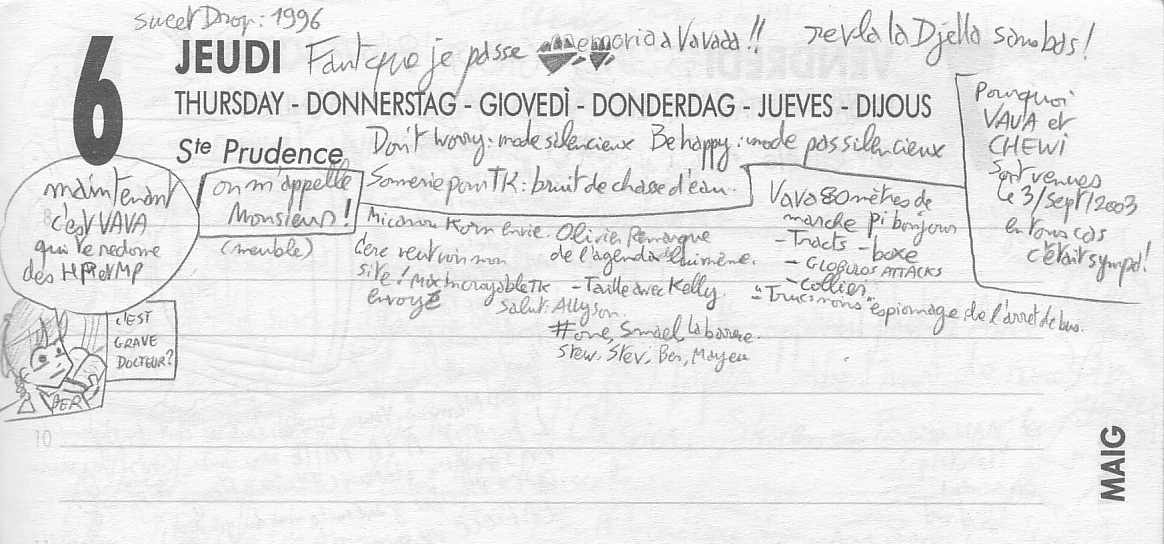 Sweet Drop : 1996
6
JEUDI Faut que je passe Memorio a Vavada !! revla la Djella
THURSDAY - DONNERSTAG - GIOVEDÌ - DONDERDAG - JUEVES - DIJOUS
Ste Prudence
Don't worry : mode silencieux Be happy : mode pas silencieux
Sonnerie pour TK : bruit de chasse d'eau.
Pourquoi
VAVA et
CHEWI
Sont venues
le 3/sept/2003
en tous cas
c'était sympa !
maintenant
c'est VAVA
qui te redonne
des HP et MP
on m'appelle
Monsieur !
(meuble)
Korn envie.
site ! Mix incroyable TK
envoyé
Olivier Remarque
de l'agenda lui même.
- Taille avec Kelly
Salut : Allyson.
#one, Smael
Stew, Stev, Ben, Mayeu
Vava 80 mètres de
marche pi bonjour
- Tracts - boxe
- GLOBULOS ATTACKS
- Collier
espionage de l'arret de bus.
C'EST
GRAVE
DOCTEUR ?
BER
10
MAIG